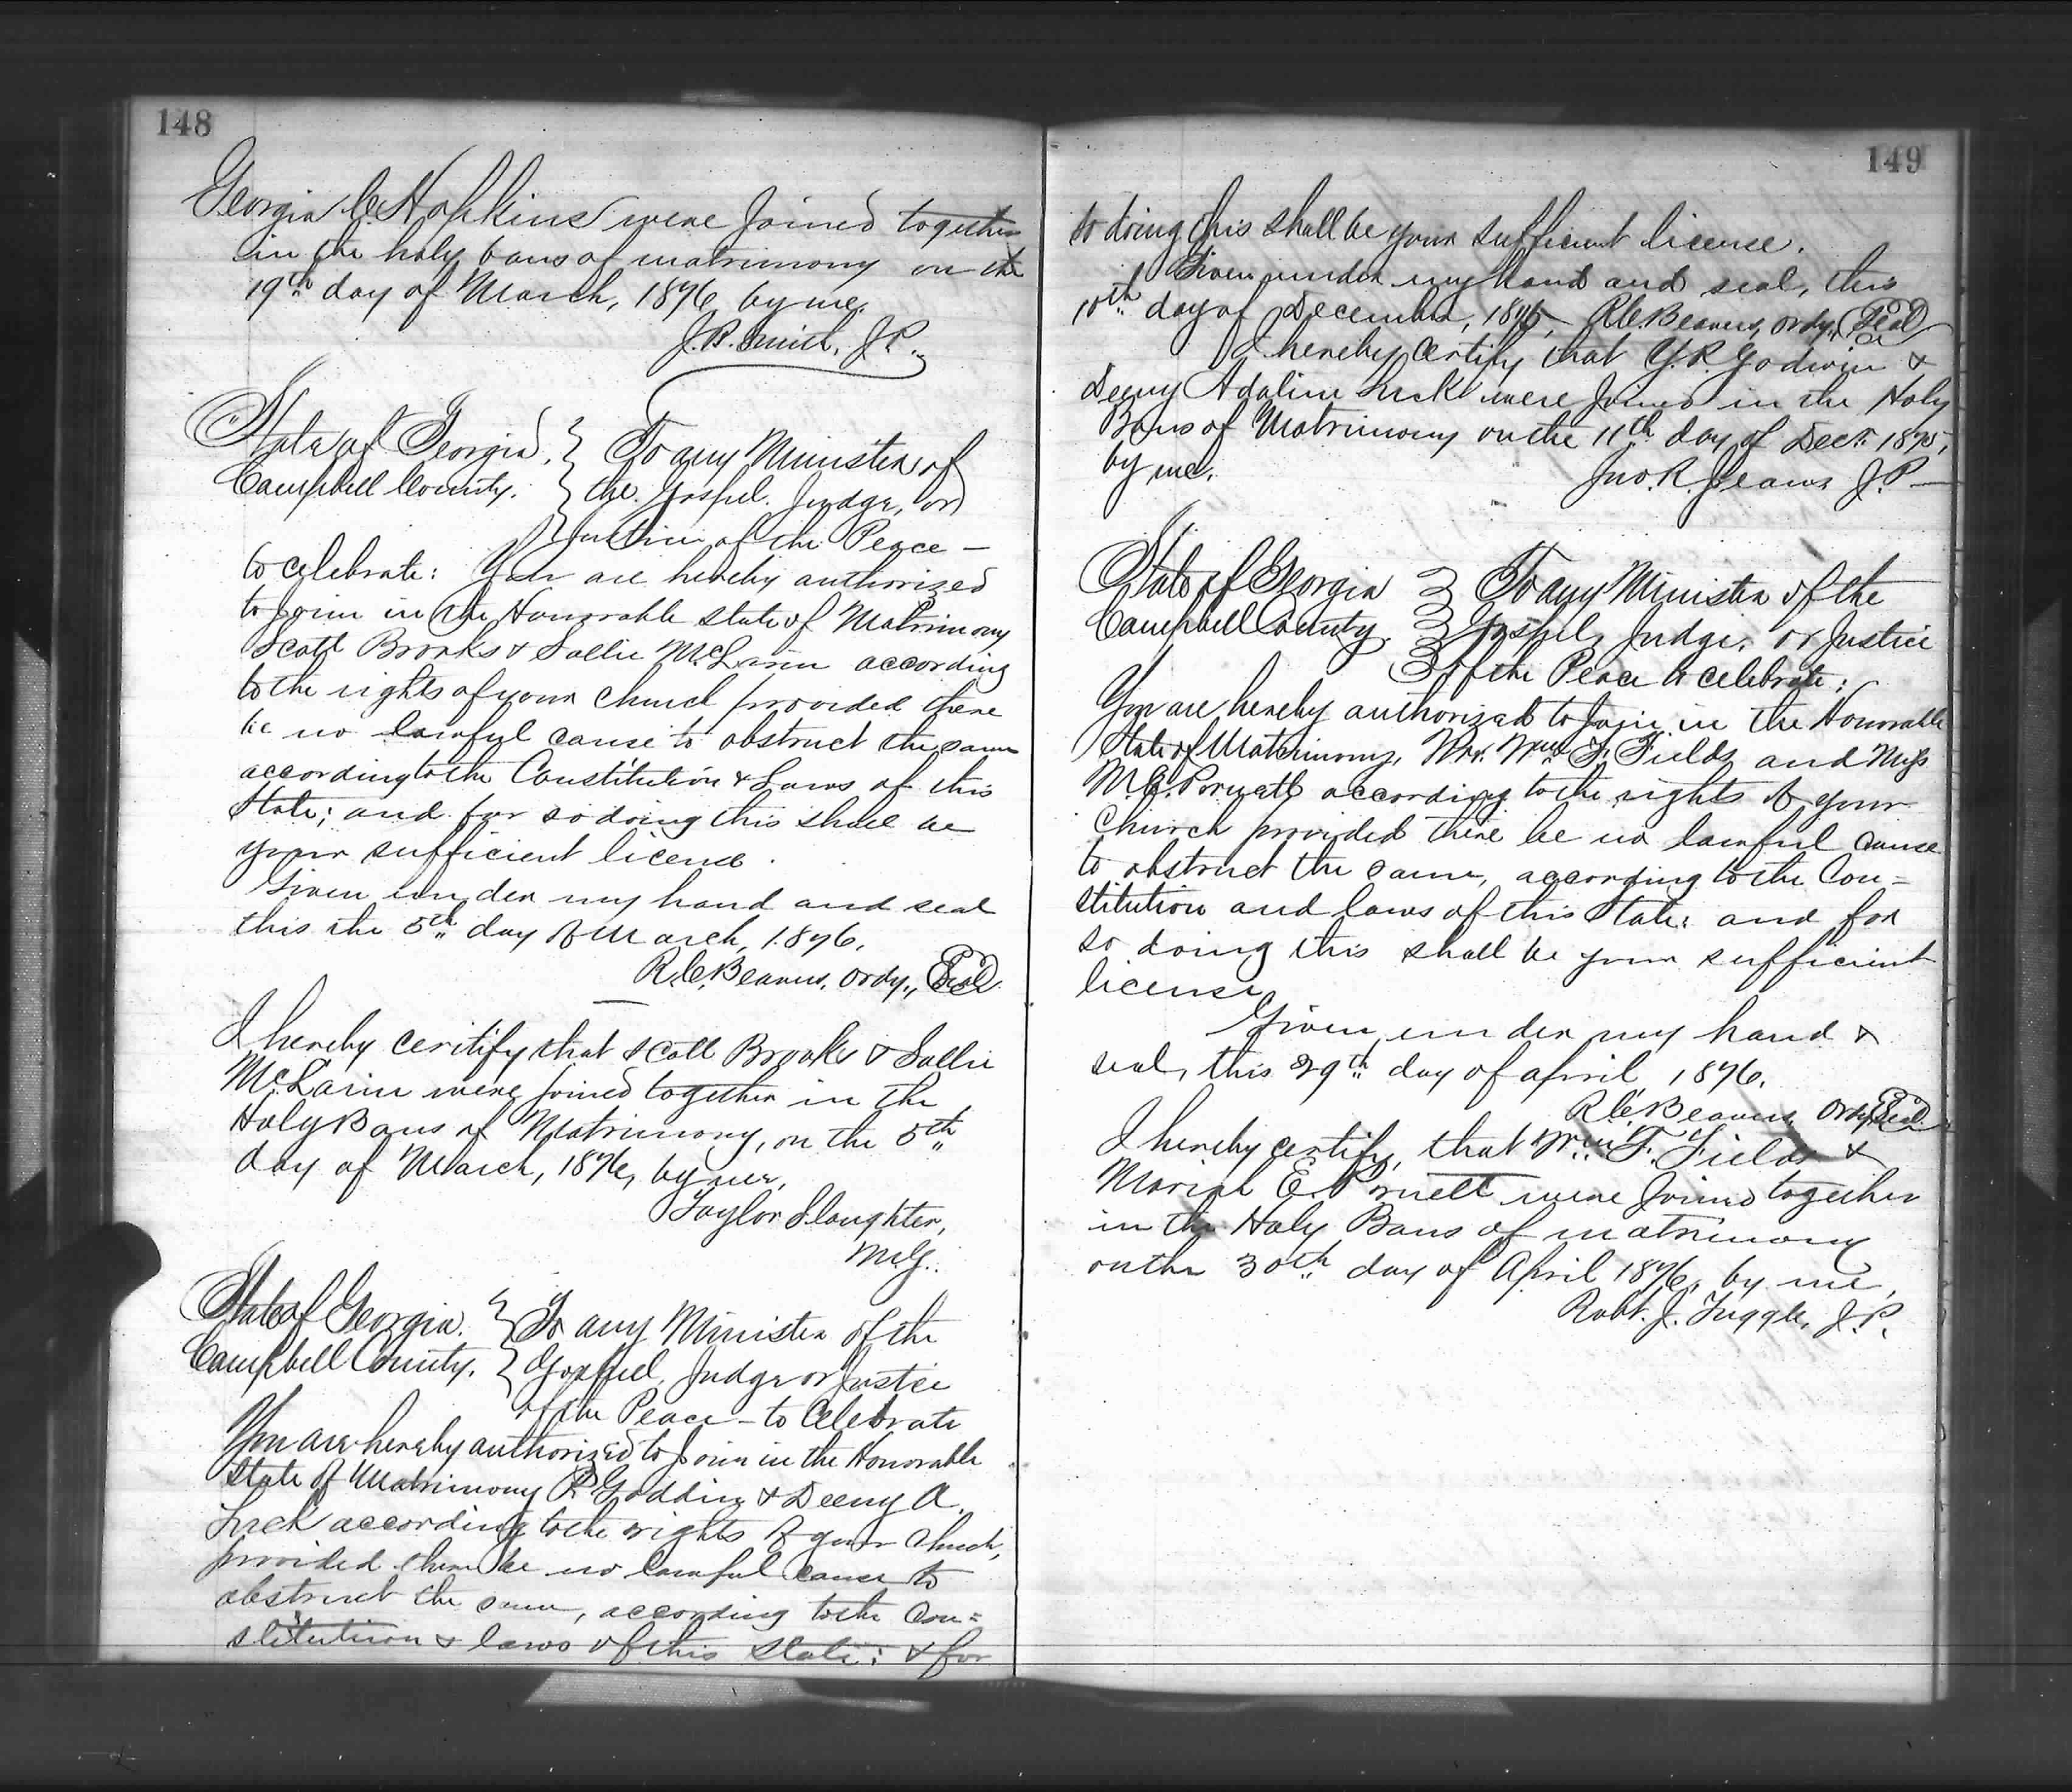 148
Georgia C. Hopkins were Joined together
in the holy bans of matrimony on the
19th day of March, 1876, by me.
J. P. Smith, J.P.
State of Georgia, To any Minister of
Campbell County. the Gospel. Judge, or
Justice of the Peace —
to celebrate: You are hereby authorized
to Join in the Honorable state of Matrimony
Scott Brooks & Sallie McLarin according
to the rights of your Church provided there
be no lawful cause to obstruct the same
according to the Constitution & Laws of this
State; and for so doing this shall be
your sufficient license.
Given under my hand and seal
this the 5th day of March, 1876.
R.C. Beavers, Ordy., Seal
I hereby ceritify that Scott Brooks & Sallie
McLarin were joined together in the
Holy Bans of Matrimony, on the 5th
day of March, 1876, by me,
Taylor Slaughter,
M.G.
State of Georgia. To any Minister of the
Campbell County. Gospel, Judge or Justice
of the Peace — to Celebrate
You are hereby authorized to Join in the Honorable
State of Matrimony P. Goddin & Deeny A.
Luck according to the rights of your Church,
provided there be no lawful cause to
obstruct the same, according to the Con=
stitution & laws of this State: & for
149
so doing this shall be your sufficient license.
Given under my hand and seal, this
10th day of December, 1875, R.C. Beavers, Ordy, Seal
I hereby certify that Y.P. Godwin &
Deeny Adaline Luck were Joined in the Holy
Bans of Matrimony on the 11th day of Decr. 1875,
by me. Jno. R. Jeans J.P —
State of Georgia To any Minister of the
Campbell County. Gospel, Judge, or Justice
of the Peace to celebrate:
You are hereby authorized to Join in the Honorable
State of Matrimony, Mr. Wm. F. Fields and Miss
M.E. Pruett according to the rights of your
Church provided there be no lawful cause
to obstruct the same, according to the Con=
stitution and laws of this State: and for
so doing this shall be your sufficient
license,
Given under my hand &
seal, this 29th day of april 1876.
R.C. Beavers, Ordy, Seal
I hereby certify, that Wm. F. Fields &
Mariah E. Pruett were Joined together
in the Holy Bans of matrimony
on the 30th day of April 1876, by me,
Robt. J. Tuggle, J.P.